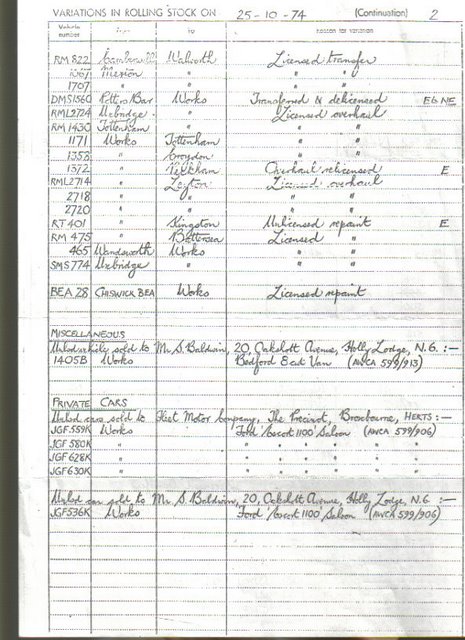 VARIATIONS IN ROLLING STOCK ON 25-10-74 (Continuation) 2
Vehicle number From To Reason for variation
RM 822 Camberwell Walworth Licensed transfer
1067 Merton " " "
1707 " " " "
DMS1560 Potters Bar Works Transferred & delicensed E6 NE
RML2724 Uxbridge " Licensed overhaul
RM 1430 Tottenham " " "
1171 Works Tottenham " "
1358 " Croydon " "
1372 " Overhaul relicensed E
RML2714 " Leyton Licensed overhaul
2718 " " " "
2720 " " " "
RT 401 " Kingston Unlicensed repaint E
RM 475 " Battersea Licensed "
465 Wandsworth Works " "
SMS 774 Uxbridge " " "
BEA 28 CHISWICK BEA Works Licensed repaint
MISCELLANEOUS
sold to Mr. S. Baldwin, 20, Oakshott Avenue, Holly Lodge, N.6. :—
1405B Works Bedford Van (AWCA 599/913)
PRIVATE CARS
cars sold to Fleet Motor Company, The Precinct, Broxbourne, HERTS :—
JGF 559K Works Ford 'Escort 1100' Saloon (AWCA 599/906)
JGF 580K " " " " " "
JGF 628K " " " " " "
JGF 630K " " " " " "
car sold to Mr. S. Baldwin, 20, Oakshott Avenue, Holly Lodge, N.6 :—
JGF 536K Works Ford 'Escort 1100' Saloon (AWCA 599/906)